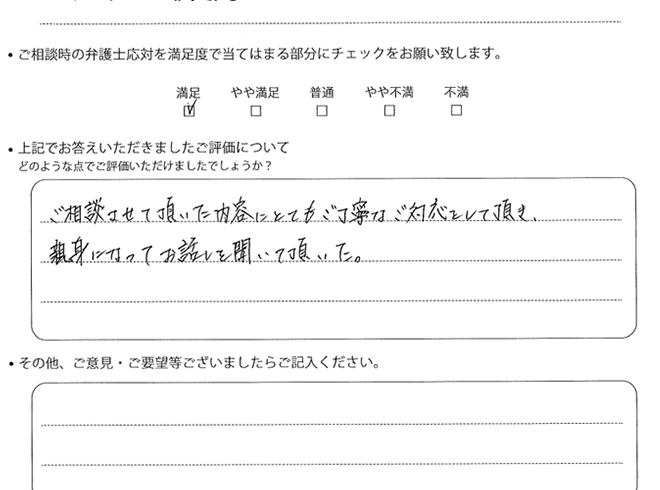 • ご相談時の弁護士応対を満足度で当てはまる部分にチェックをお願い致します。
満足 やや満足 普通 やや不満 不満
• 上記でお答えいただきましたご評価について
どのような点でご評価いただけましたでしょうか？
ご相談させて頂いた内容にとてもご丁寧なご対応をして頂き、
親身になってお話しを聞いて頂いた。
• その他、ご意見・ご要望等ございましたらご記入ください。